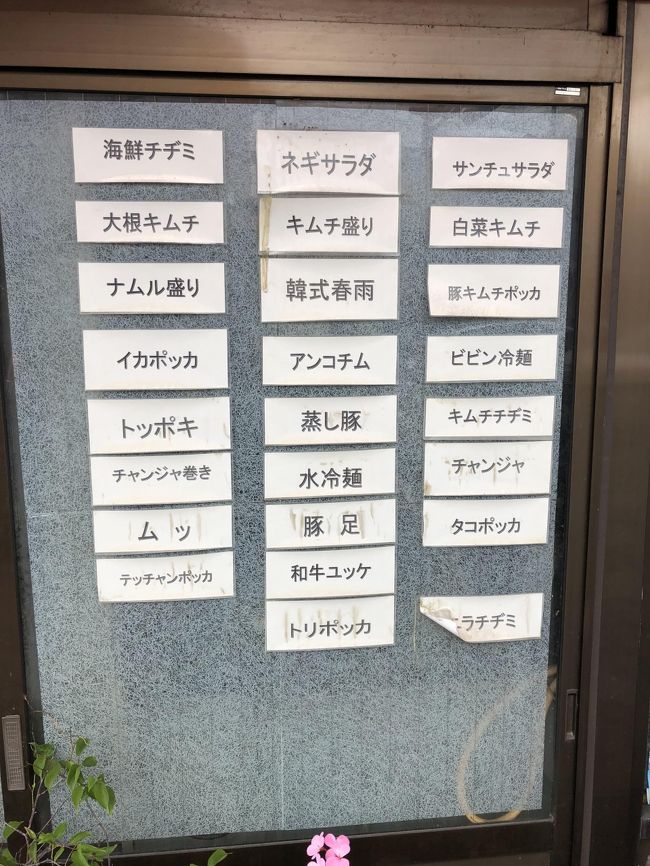 海鮮チヂミ
大根キムチ
ナムル盛り
イカポッカ
トッポキ
チャンジャ巻き
ムッ
テッチャンポッカ
ネギサラダ
キムチ盛り
韓式春雨
アンコチム
蒸し豚
水冷麺
豚足
和牛ユッケ
トリポッカ
サンチュサラダ
白菜キムチ
豚キムチポッカ
ビビン冷麺
キムチチヂミ
チャンジャ
タコポッカ
ニラチヂミ